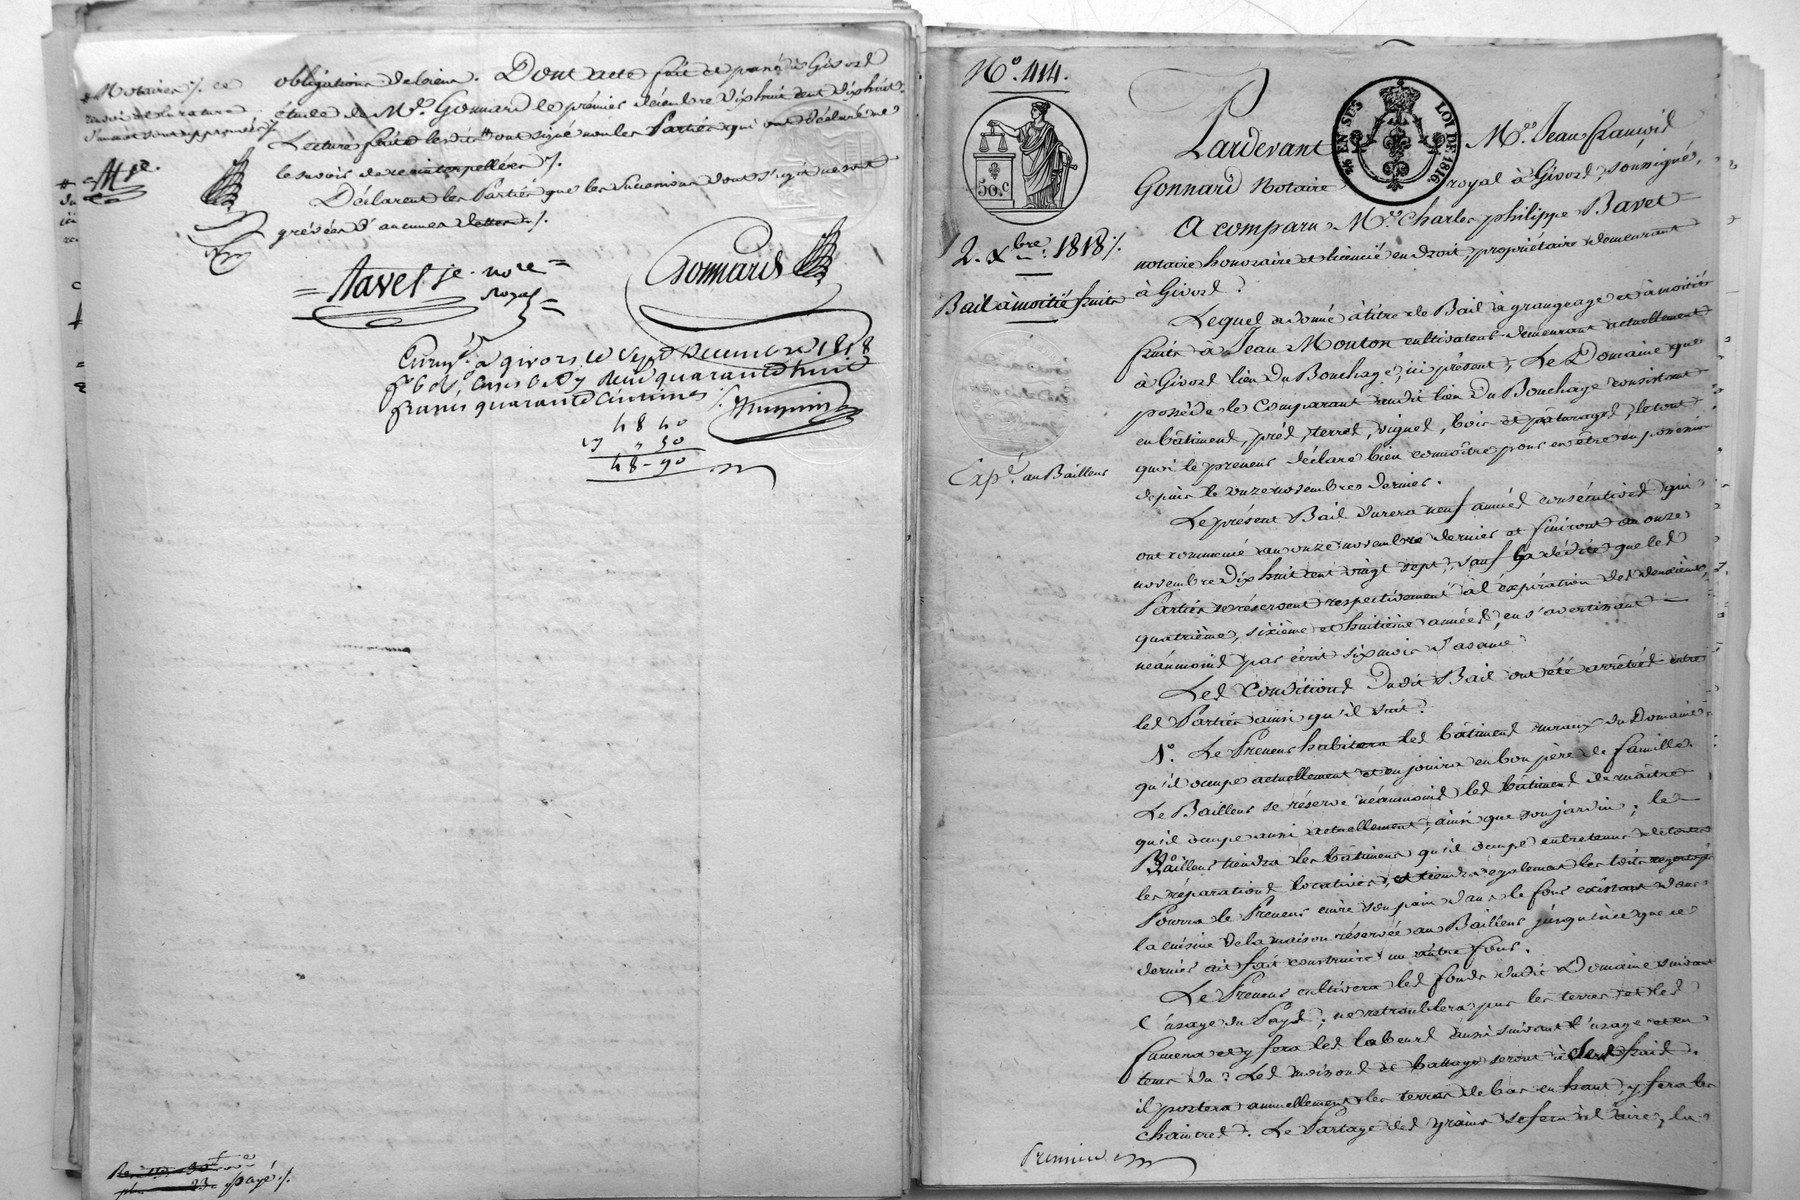 Notaires /. ce
obligations de bien. Dont acte fait et passé à Givors
étude de Me. Gonnard le premier décembre dix huit cent dix huit
Lecture faite les dits ont signé non les Parties qui ont déclaré ne
le savoir de ce interpellées /.
Déclarent les Parties que les successions dont s'agit ne sont
grévées d'aucunes dettes /.
= Navel je. nore =
Royal =
Gonnard
Enregé. à givors le Sept décembre 1818
reçu quarante huit
francs quarante centimes
48 40
" 50
48-90
payé /.
No. 414.
50c
¼ EN SUS LOI DE 1816.
2. Xbre. 1818 /.
Bail à moitié fruits
Expé. au Bailleur
Pardevant Me. Jean françois
Gonnard Notaire royal à Givors, soussigné,
A comparu Mr. Charles philippe Bavet
notaire honoraire et licencié en droit, propriétaire demeurant
à Givors ;
Lequel a donné à titre de Bail à grangeage et à moitié
fruits à Jean Mouton cultivateur demeurant actuellement
à Givors lieu du Bouchage, ici présent, Le Domaine que
possède le Comparant audit lieu du Bouchage consistant
en bâtiment, prés, terres, vignes, bois et pâturages, le tout
quoi le preneur déclare bien connoître pour en être en possession
depuis le onze novembre dernier.
Le présent Bail durera neuf années consécutives qui
ont commencé au onze novembre dernier et finiront au onze
novembre dix huit cent vingt sept, sauf la dédite que les
Parties se réservent respectivement à l'expiration des deuxième,
quatrième, sixième et huitième années, en s'avertissant
néanmoins par écrit six mois d'avance.
Les conditions dudit Bail ont été arrêtées entre
les Parties ainsi qu'il suit :
1°. Le Preneur habitera les bâtiments ruraux du Domaine
qu'il occupe actuellement et en jouira en bon père de famille.
Le Bailleur se réserve néanmoins les bâtimens du maître
qu'il occupe aussi actuellement, ainsi que son jardin ; le
Bailleur tiendra les bâtimens qu'il occupe entretenus de toutes
les réparations locatives, et tiendra également les toits
Pourra le Preneur cuire son pain dans le four existant dans
la cuisine de la maison réservée au Bailleur jusqu'à ce que ce
dernier ait fait construire un autre four.
Le Preneur cultivera les fonds dudit Domaine suivant
l'usage du Pays ; ne retroublera pas les terres et les
fumera et y fera les labeurs aussi suivant l'usage et en
tems dû ; Les moissons et battage seront à ses frais.
il portera annuellement les terres de bas en haut, y fera les
chaintres. Le Partage des grains se fera à l'aire, la
Premier